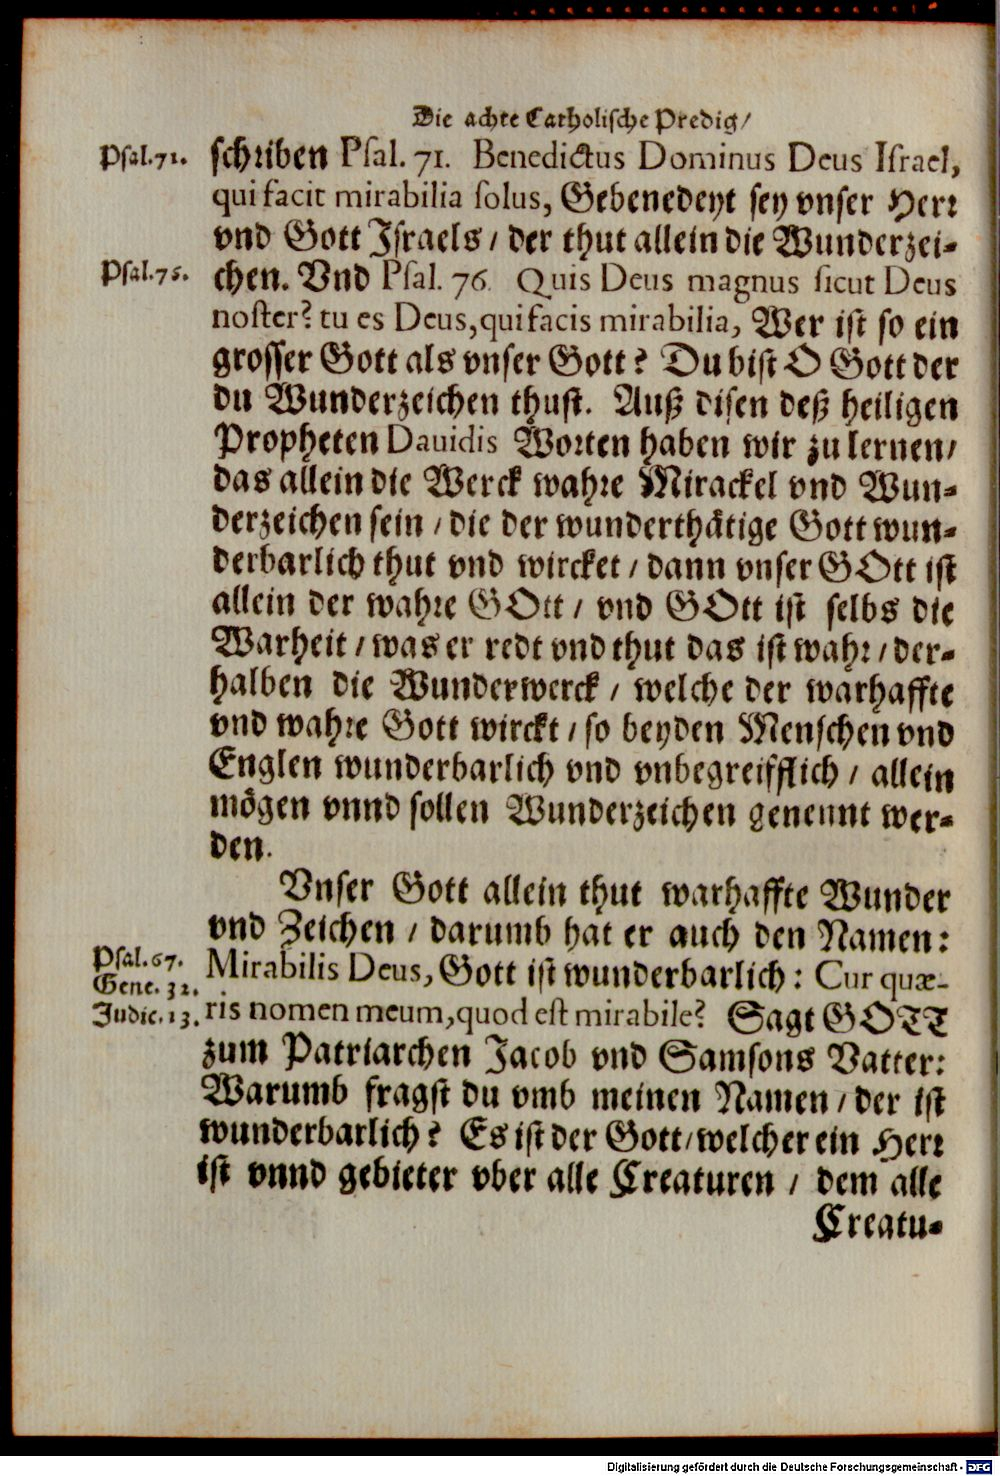 Die achte Catholische Predig/
Psal. 71. schriben Psal. 71. Benedictus Dominus Deus Israel,
qui facit mirabilia solus, Gebenedeyt sey vnser Herr
vnd Gott Israels / der thut allein die Wunderzei-
Psal. 76. chen. Vnd Psal. 76. Quis Deus magnus sicut Deus
noster? tu es Deus, qui facis mirabilia, Wer ist so ein
grosser Gott als vnser Gott? Du bist O Gott der
du Wunderzeichen thust. Auß disen deß heiligen
Propheten Dauidis Worten haben wir zu lernen/
das allein die Werck wahre Mirackel vnd Wun-
derzeichen sein / die der wunderthätige Gott wun-
derbarlich thut vnd wircket / dann vnser GOtt ist
allein der wahre GOtt / vnd GOtt ist selbs die
Warheit / was er redt vnd thut das ist wahr / der-
halben die Wunderwerck / welche der warhaffte
vnd wahre Gott wirckt / so beyden Menschen vnd
Englen wunderbarlich vnd vnbegreifflich / allein
mögen vnnd sollen Wunderzeichen genennt wer-
den.
Vnser Gott allein thut warhaffte Wunder
vnd Zeichen / darumb hat er auch den Namen:
Psal. 67. Mirabilis Deus, Gott ist wunderbarlich: Cur quæ-
Gene. 32.
Iudic. 13. ris nomen meum, quod est mirabile? Sagt GOTT
zum Patriarchen Jacob vnd Samsons Vatter:
Warumb fragst du vmb meinen Namen / der ist
wunderbarlich? Es ist der Gott / welcher ein Herr
ist vnnd gebieter vber alle Creaturen / dem alle
Creatu-
Digitalisierung gefördert durch die Deutsche Forschungsgemeinschaft - DFG